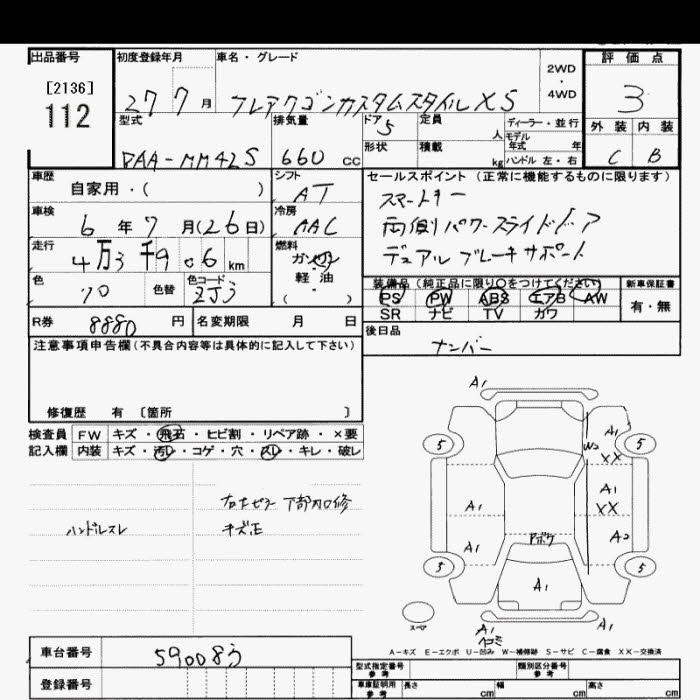 出品番号 初度登録年月 車名・グレード 評価点
[2136]
112
27 7月 フレアワゴンカスタムスタイル XS
2WD
・
4WD
3
型式 排気量 ドア 5 定員 人 ディーラー・並行 外装 内装
DAA-MM42S 660 cc 形状 積載 kg モデル年式 年 ハンドル 左・右 C B
車歴 自家用・( ) シフト AT セールスポイント (正常に機能するものに限ります)
スマートキー
車検 6年7月(26日) 冷房 AAC
両側パワースライドドア
走行 4万3千906km 燃料 ガソリン 軽・油 ( )
デュアルブレーキサポート
色 色替 色コード ZJ3
装備品 (純正品に限り○をつけてください) 新車保証書
PS PW ABS エアB AW 有・無
SR ナビ TV カワ
R券 8880円 名変期限 月 日
後日品
ナンバー
注意事項申告欄(不具合内容等は具体的に記入して下さい)
修復歴 有 〔箇所 〕
検査員 FW キズ・飛石・ヒビ割・リペア跡・×要
記入欄 内装 キズ・汚レ・コゲ・穴・スレ・キレ・破レ
ハンドルスレ
キズ正
A1
5 5
A1
W2
XX
A1
XX
A1
A1
A2
5 5
A1
スペア
A1
A1
A-キズ E-エクボ U-凹み W-補修跡 S-サビ C-腐食 XX-交換済
車台番号 590083
登録番号
型式指定番号 参考 類別区分番号 参考
車庫証明用 参考 長さ cm 幅 cm 高さ cm